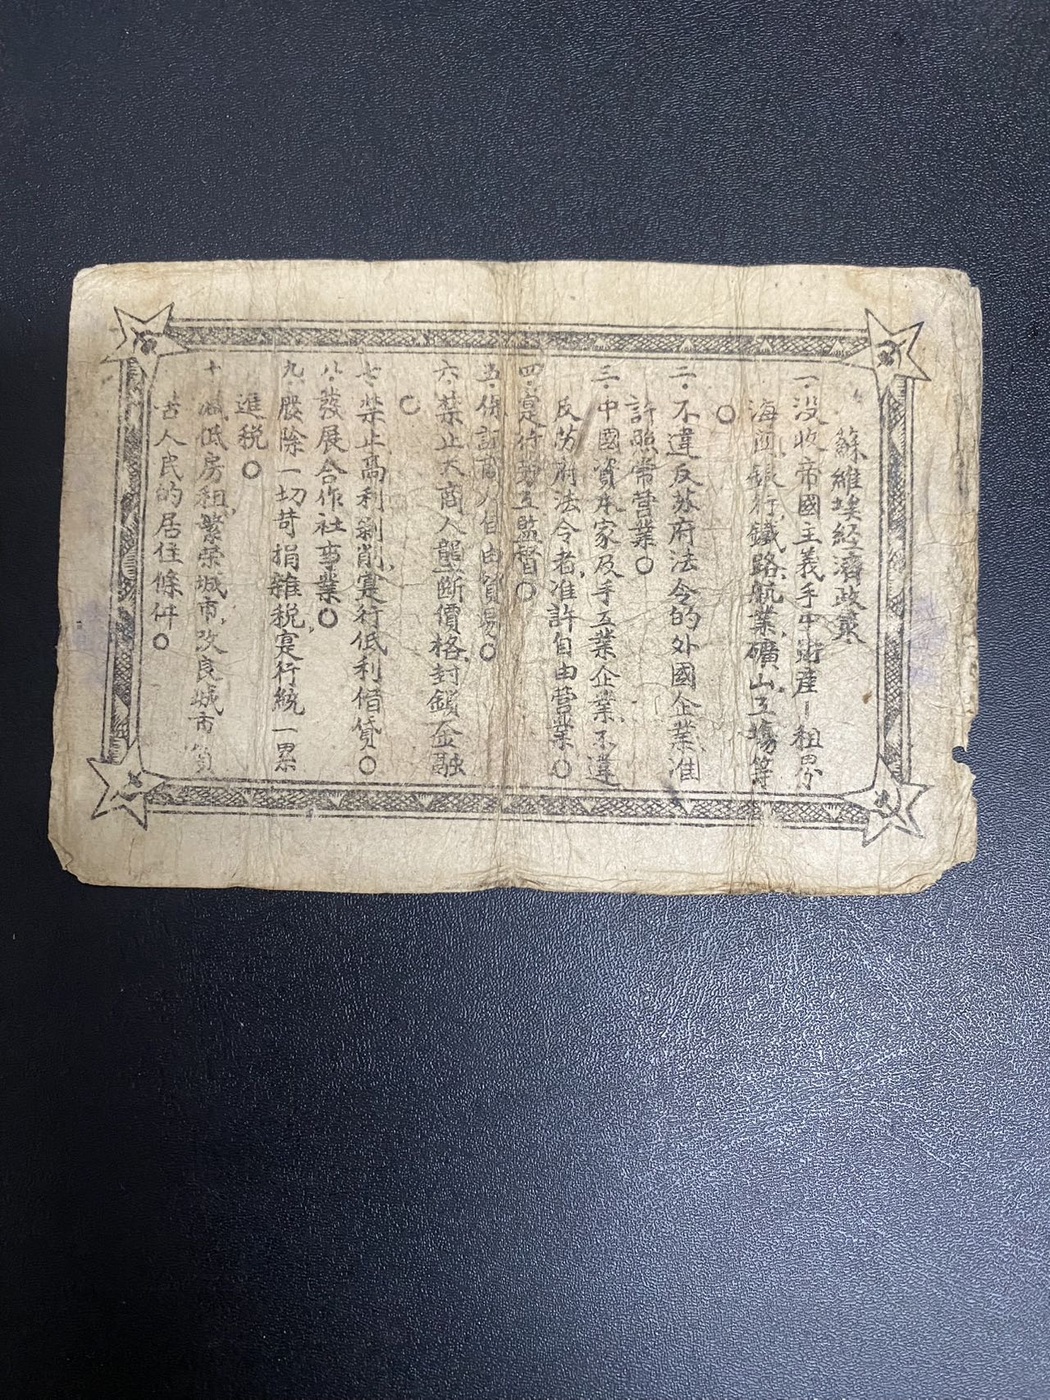 蘇維埃經濟政策
一．没收帝國主義手中財産－租界
海関銀行鐵路航業礦山工塲等
○
二．不違反苏府法令的外國企業准
許照常营業○
三．中國資本家及手工業企業不違
反苏府法令者准許自由营業○
四．寔行劳工監督○
五．保証商人自由貿易○
六．禁止大商人壟断價格封鎖金融
○
七．禁止高利剥削寔行低利借貸○
八．發展合作社事業○
九．廢除一切苛捐雜税，寔行統一累
進税○
十．减低房租，繁荣城市，改良城市貧
苦人民的居住條件○